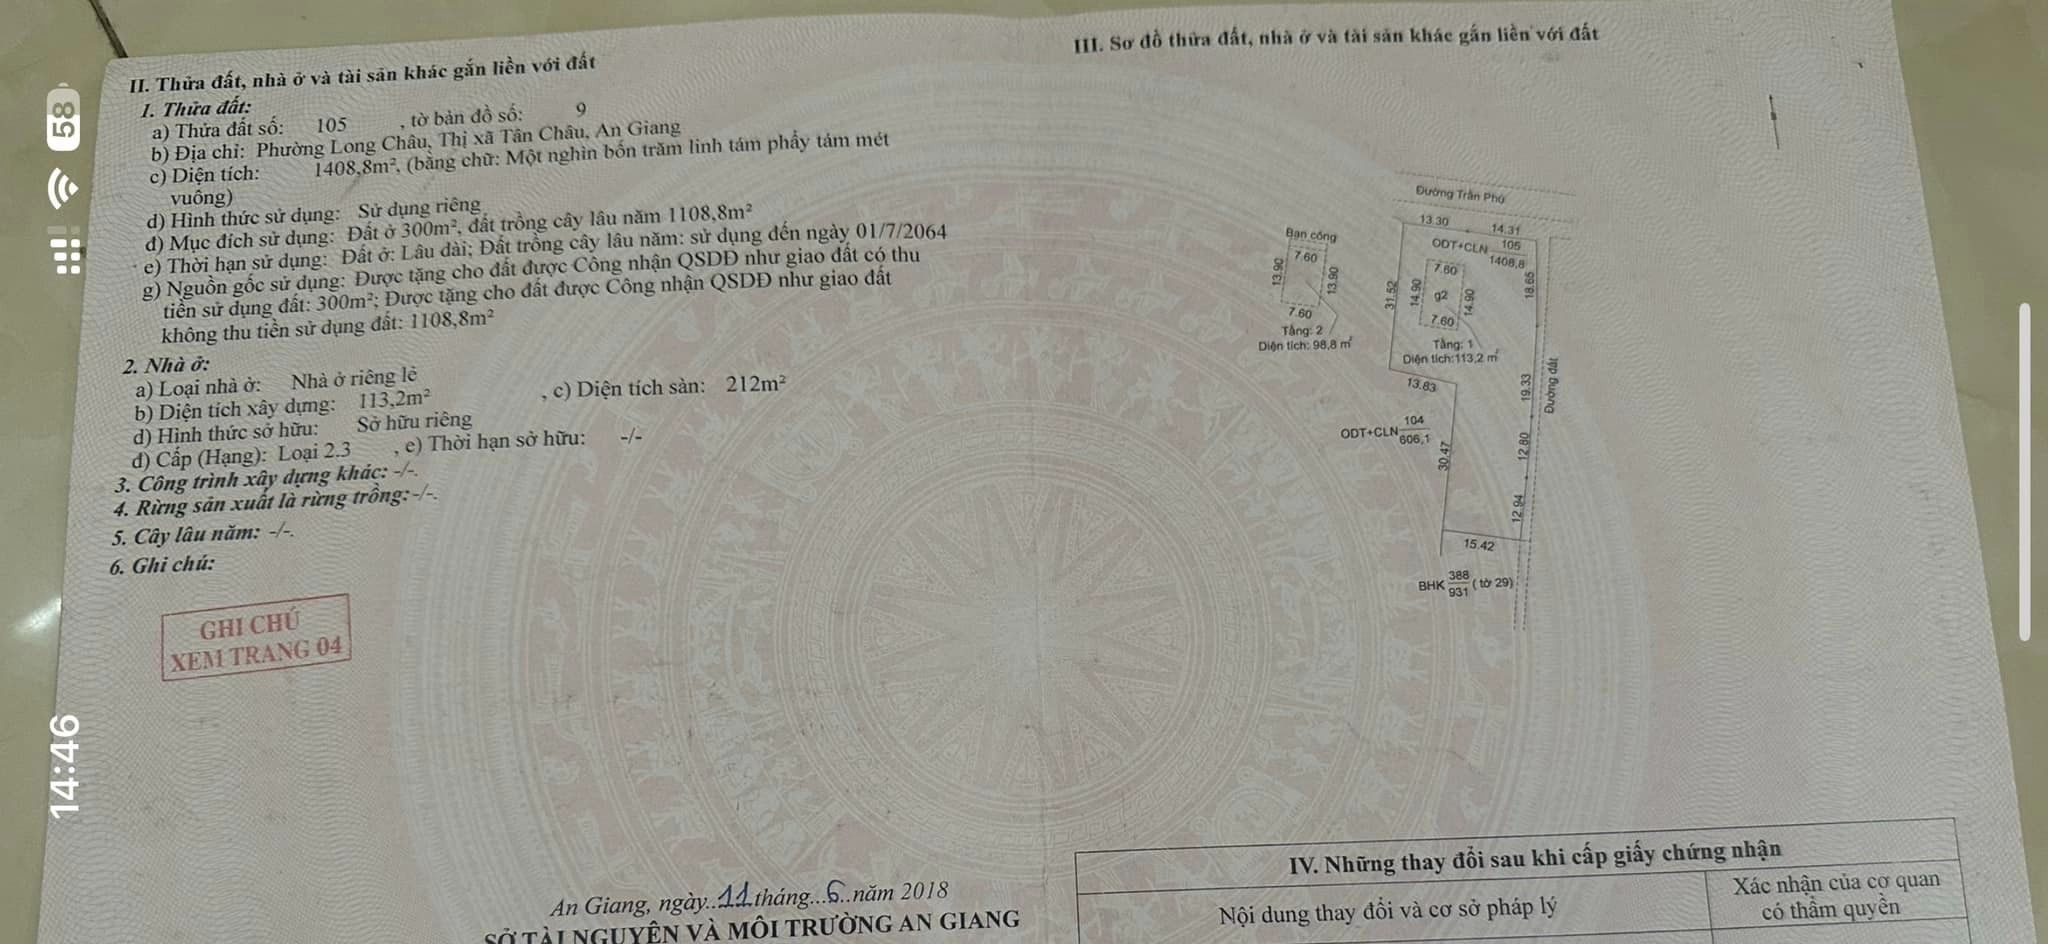 II. Thửa đất, nhà ở và tài sản khác gắn liền với đất
1. Thửa đất:
a) Thửa đất số: 105 , tờ bản đồ số: 9
b) Địa chỉ: Phường Long Châu, Thị xã Tân Châu, An Giang
c) Diện tích: 1408,8m², (bằng chữ: Một nghìn bốn trăm linh tám phẩy tám mét
vuông)
d) Hình thức sử dụng: Sử dụng riêng
đ) Mục đích sử dụng: Đất ở 300m², đất trồng cây lâu năm 1108,8m²
e) Thời hạn sử dụng: Đất ở: Lâu dài; Đất trồng cây lâu năm: sử dụng đến ngày 01/7/2064
g) Nguồn gốc sử dụng: Được tặng cho đất được Công nhận QSDĐ như giao đất có thu
tiền sử dụng đất: 300m²; Được tặng cho đất được Công nhận QSDĐ như giao đất
không thu tiền sử dụng đất: 1108,8m²
2. Nhà ở:
a) Loại nhà ở: Nhà ở riêng lẻ
b) Diện tích xây dựng: 113,2m² , c) Diện tích sàn: 212m²
d) Hình thức sở hữu: Sở hữu riêng
đ) Cấp (Hạng): Loại 2.3 , e) Thời hạn sở hữu: -/-
3. Công trình xây dựng khác: -/-.
4. Rừng sản xuất là rừng trồng: -/-.
5. Cây lâu năm: -/-.
6. Ghi chú:
GHI CHÚ
XEM TRANG 04
An Giang, ngày..11..tháng...6..năm 2018
SỞ TÀI NGUYÊN VÀ MÔI TRƯỜNG AN GIANG
III. Sơ đồ thửa đất, nhà ở và tài sản khác gắn liền với đất
Đường Trần Phú
13.30
14.31
ODT+CLN 105
1408,8
Ban công
7.60
13.90
13.90
7.60
Tầng: 2
Diện tích: 98,8 m²
31.52
7.60
14.90
g2
14.90
7.60
Tầng: 1
Diện tích:113,2 m²
18.65
13.83
19.33
Đường đất
ODT+CLN 104
606,1
30.47
12.80
12.94
15.42
BHK 388
931 ( tờ 29)
IV. Những thay đổi sau khi cấp giấy chứng nhận
Nội dung thay đổi và cơ sở pháp lý
Xác nhận của cơ quan
có thẩm quyền
58
14:46